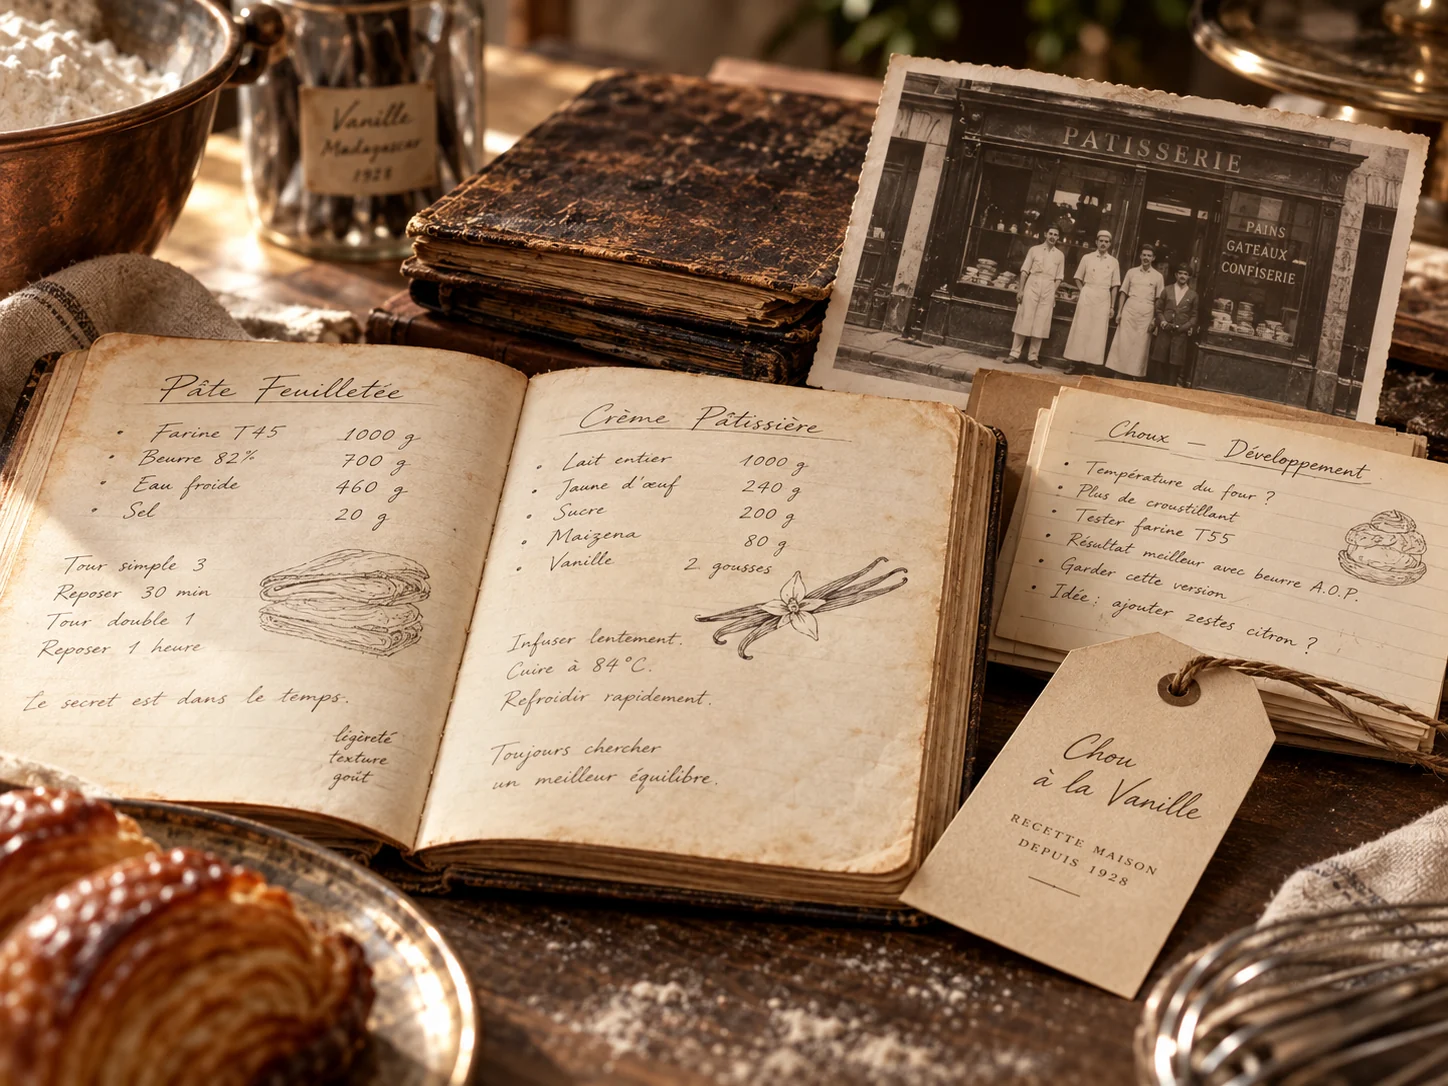 Vanille
Madagascar
1928
PATISSERIE
PAINS
GATEAUX
CONFISERIE
Pâte Feuilletée
• Farine T45 1000 g
• Beurre 82% 700 g
• Eau froide 460 g
• Sel 20 g
Tour simple 3
Reposer 30 min
Tour double 1
Reposer 1 heure
Le secret est dans le temps.
ligèreté
texture
goût
Crème Pâtissière
• Lait entier 1000 g
• Jaune d'œuf 240 g
• Sucre 200 g
• Maizena 80 g
• Vanille 2 gousses
Infuser lentement.
Cuire à 84°C.
Refroidir rapidement.
Toujours chercher
un meilleur équilibre.
Choux — Développement
• Température du four ?
• Plus de croustillant
• Tester farine T55
• Résultat meilleur avec beurre A.O.P.
• Garder cette version
• Idée : ajouter zestes citron ?
Chou
à la Vanille
RECETTE MAISON
DEPUIS 1928